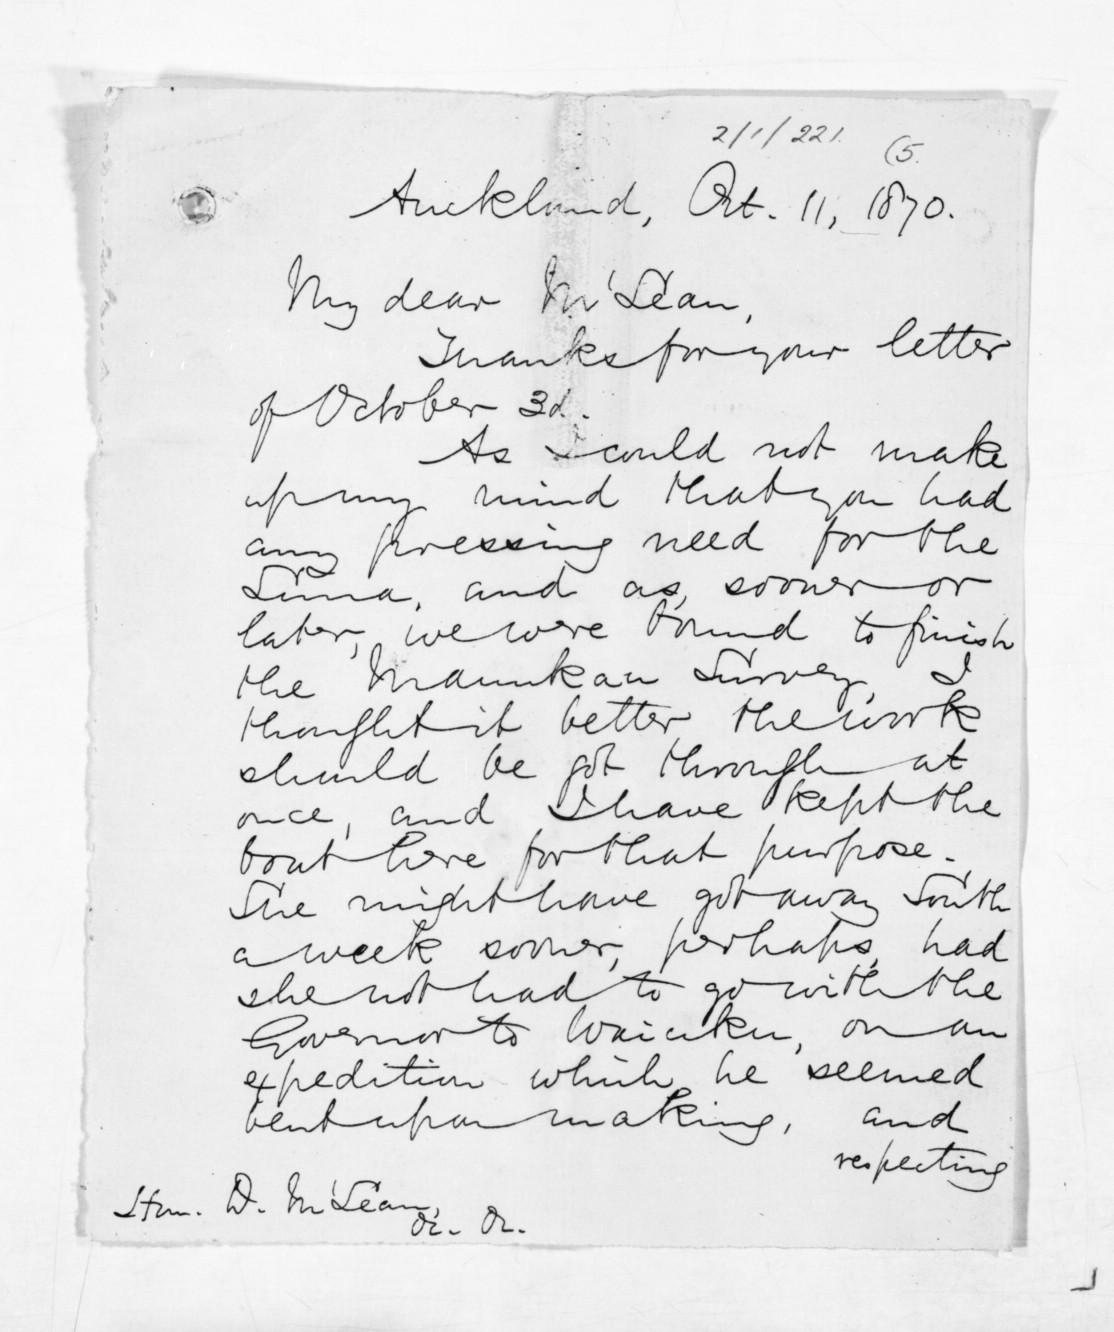 2/1/221.
(5.
Auckland, Oct. 11, 1870.
My dear McLean,
Thanks for your letter
of October 3d.
As I could not make
up my mind that you had
any pressing need for the
Luna, and as, sooner or
later, we were bound to finish
the Manukau Survey, I
thought it better the work
should be got through at
once, and I have kept the
boat here for that purpose.
She might have got away South
a week sooner, perhaps, had
she not had to go with the
Governor to Waiuku, on an
expedition which he seemed
bent upon making, and
respecting
Hon. D. McLean,
&c. &c.